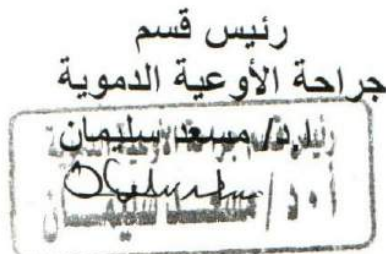 رئيس قسم
جراحة الأوعية الدموية
ا.د/ مسعد سليمان
أ.د/ مسعد سليمان